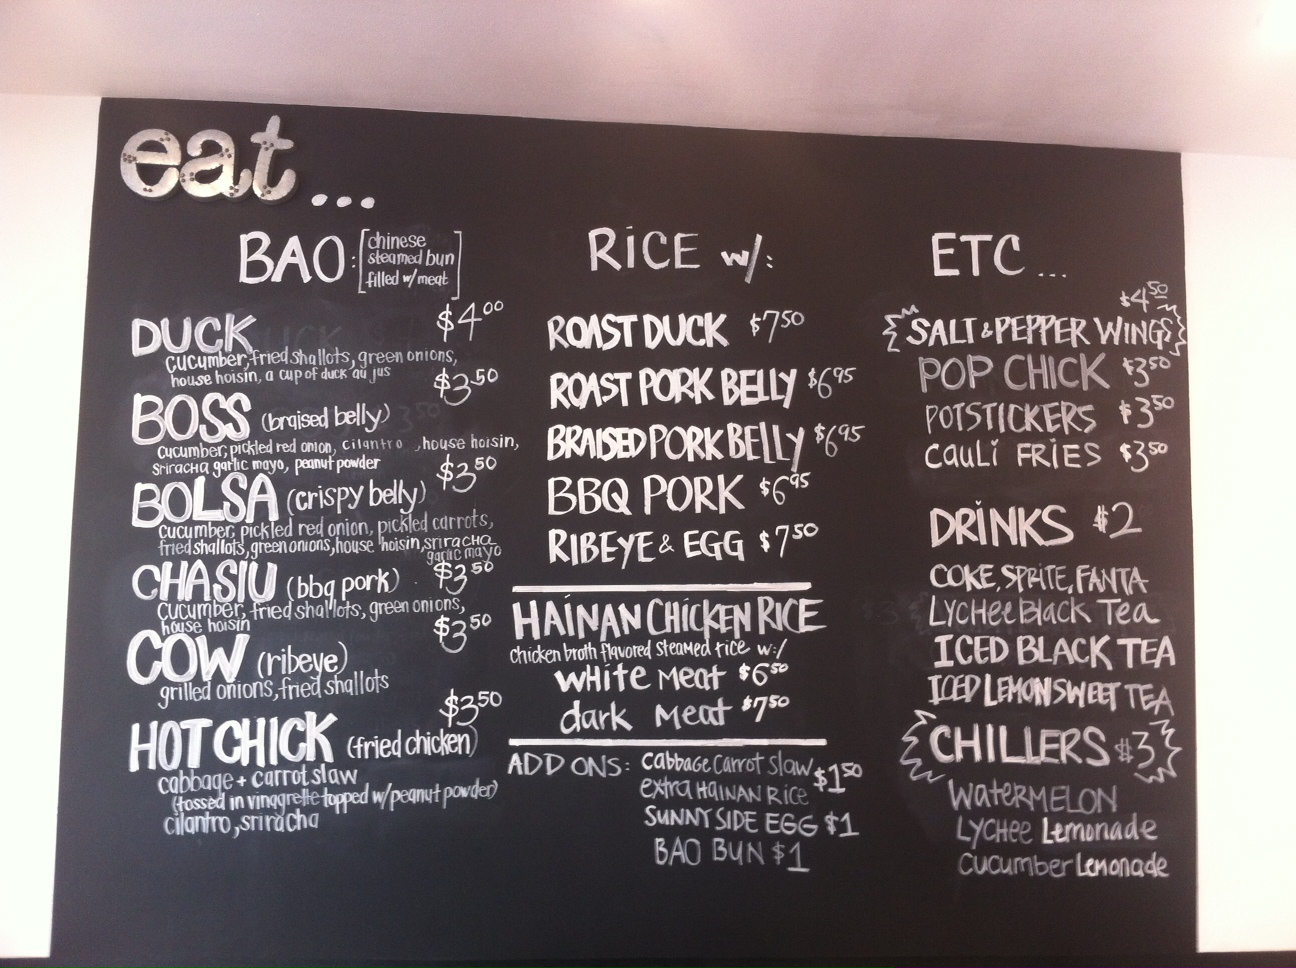 eat...
BAO: [chinese
steamed bun
filled w/meat]
DUCK $4.00
cucumber, fried shallots, green onions,
house hoisin, a cup of duck au jus
BOSS (braised belly) $3.50
cucumber, pickled red onion, cilantro, house hoisin,
sriracha garlic mayo, peanut powder
BOLSA (crispy belly) $3.50
cucumber, pickled red onion, pickled carrots,
fried shallots, green onions, house hoisin, sriracha
garlic mayo
CHASIU (bbq pork) $3.50
cucumber, fried shallots, green onions,
house hoisin
COW (ribeye) $3.50
grilled onions, fried shallots
HOT CHICK (fried chicken) $3.50
cabbage + carrot slaw
(tossed in vinagrette topped w/peanut powder)
cilantro, sriracha
RiCE w/:
ROAST DUCK $7.50
ROAST PORK BELLY $6.95
BRAISED PORK BELLY $6.95
BBQ PORK $6.95
RIBEYE & EGG $7.50
HAINAN CHICKEN RICE
chicken broth flavored steamed rice w:/
white meat $6.50
dark meat $7.50
ADD ONS: cabbage carrot slaw $1.50
extra HAINAN RICE
SUNNY SIDE EGG $1
BAO BUN $1
ETC...
$4.50
SALT & PEPPER WINGS
POP CHICK $3.50
POTSTICKERS $3.50
CAULI FRIES $3.50
DRINKS $2
COKE, SPRITE, FANTA
LYCHEE BLACK TEA
ICED BLACK TEA
ICED LEMON SWEET TEA
CHILLERS $3
WATERMELON
LYCHEE Lemonade
CUCUMBER Lemonade